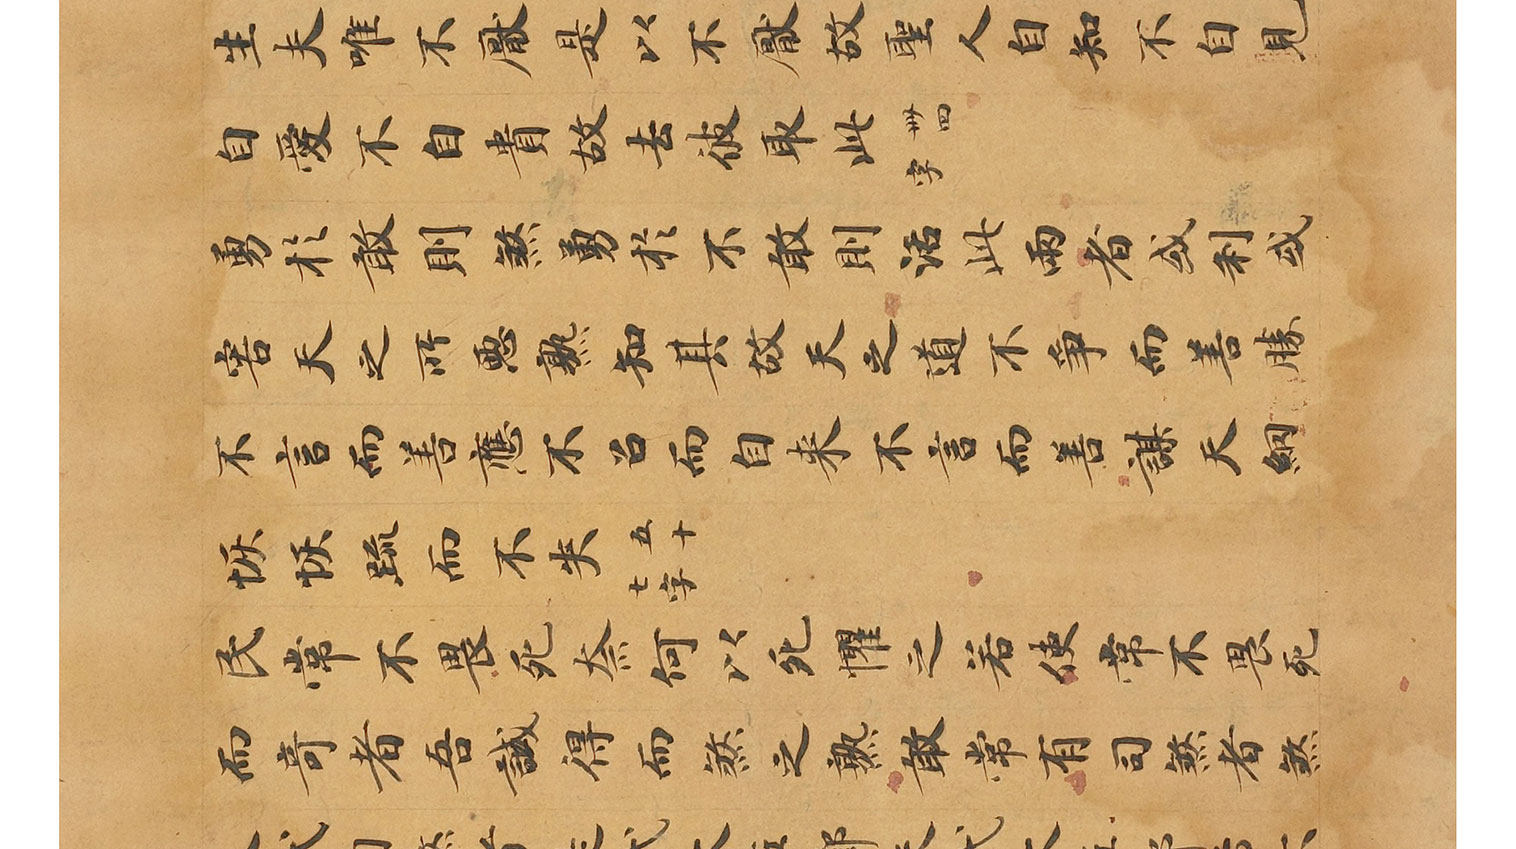 生夫唯不厭是以不厭故聖人自知不自見
自愛不自貴故去彼取此 卌四字
勇於敢則煞勇於不敢則活此兩者或利或
害天之所惡熟知其故天之道不爭而善勝
不言而善應不召而自来不言而善謀天網
恢恢踈而不失 五十七字
民常不畏死奈何以死懼之若使常不畏死
而奇者吾誠得而煞之熟敢常有司煞者煞